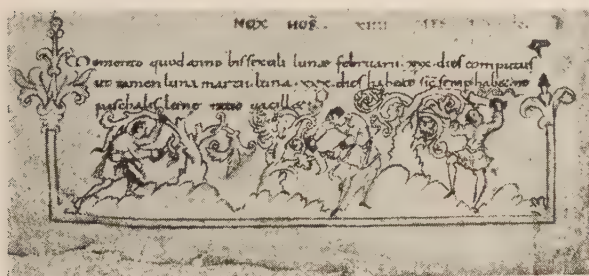 NOX HOR̄. XIIII
Memento quod anno bissextili luna februarii .xxx. dies computat
ut tamen luna martii luna .xxx. dies habeat sic semp habet ne
paschalis lune ratio vacillet